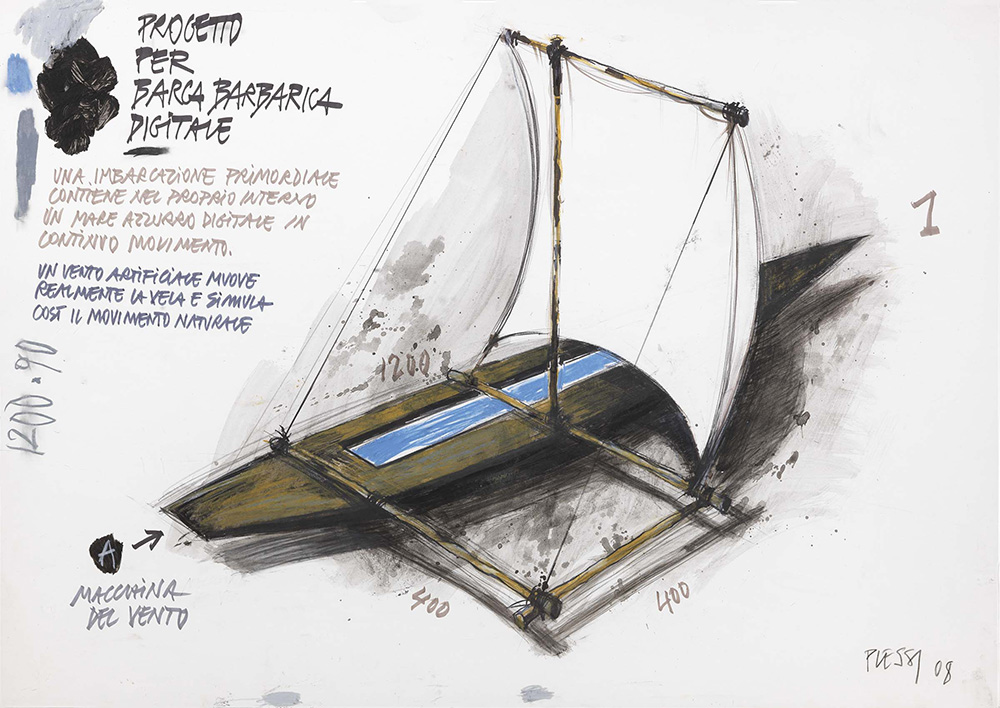 PROGETTO
PER
BARCA BARBARICA
DIGITALE
UNA IMBARCAZIONE PRIMORDIALE
CONTIENE NEL PROPRIO INTERNO
UN MARE AZZURRO DIGITALE IN
CONTINUO MOVIMENTO.
UN VENTO ARTIFICIALE MUOVE
REALMENTE LA VELA E SIMULA
COSÌ IL MOVIMENTO NATURALE
1
1200
1200 x 90
A
MACCHINA
DEL VENTO
400
400
PLESSI 08